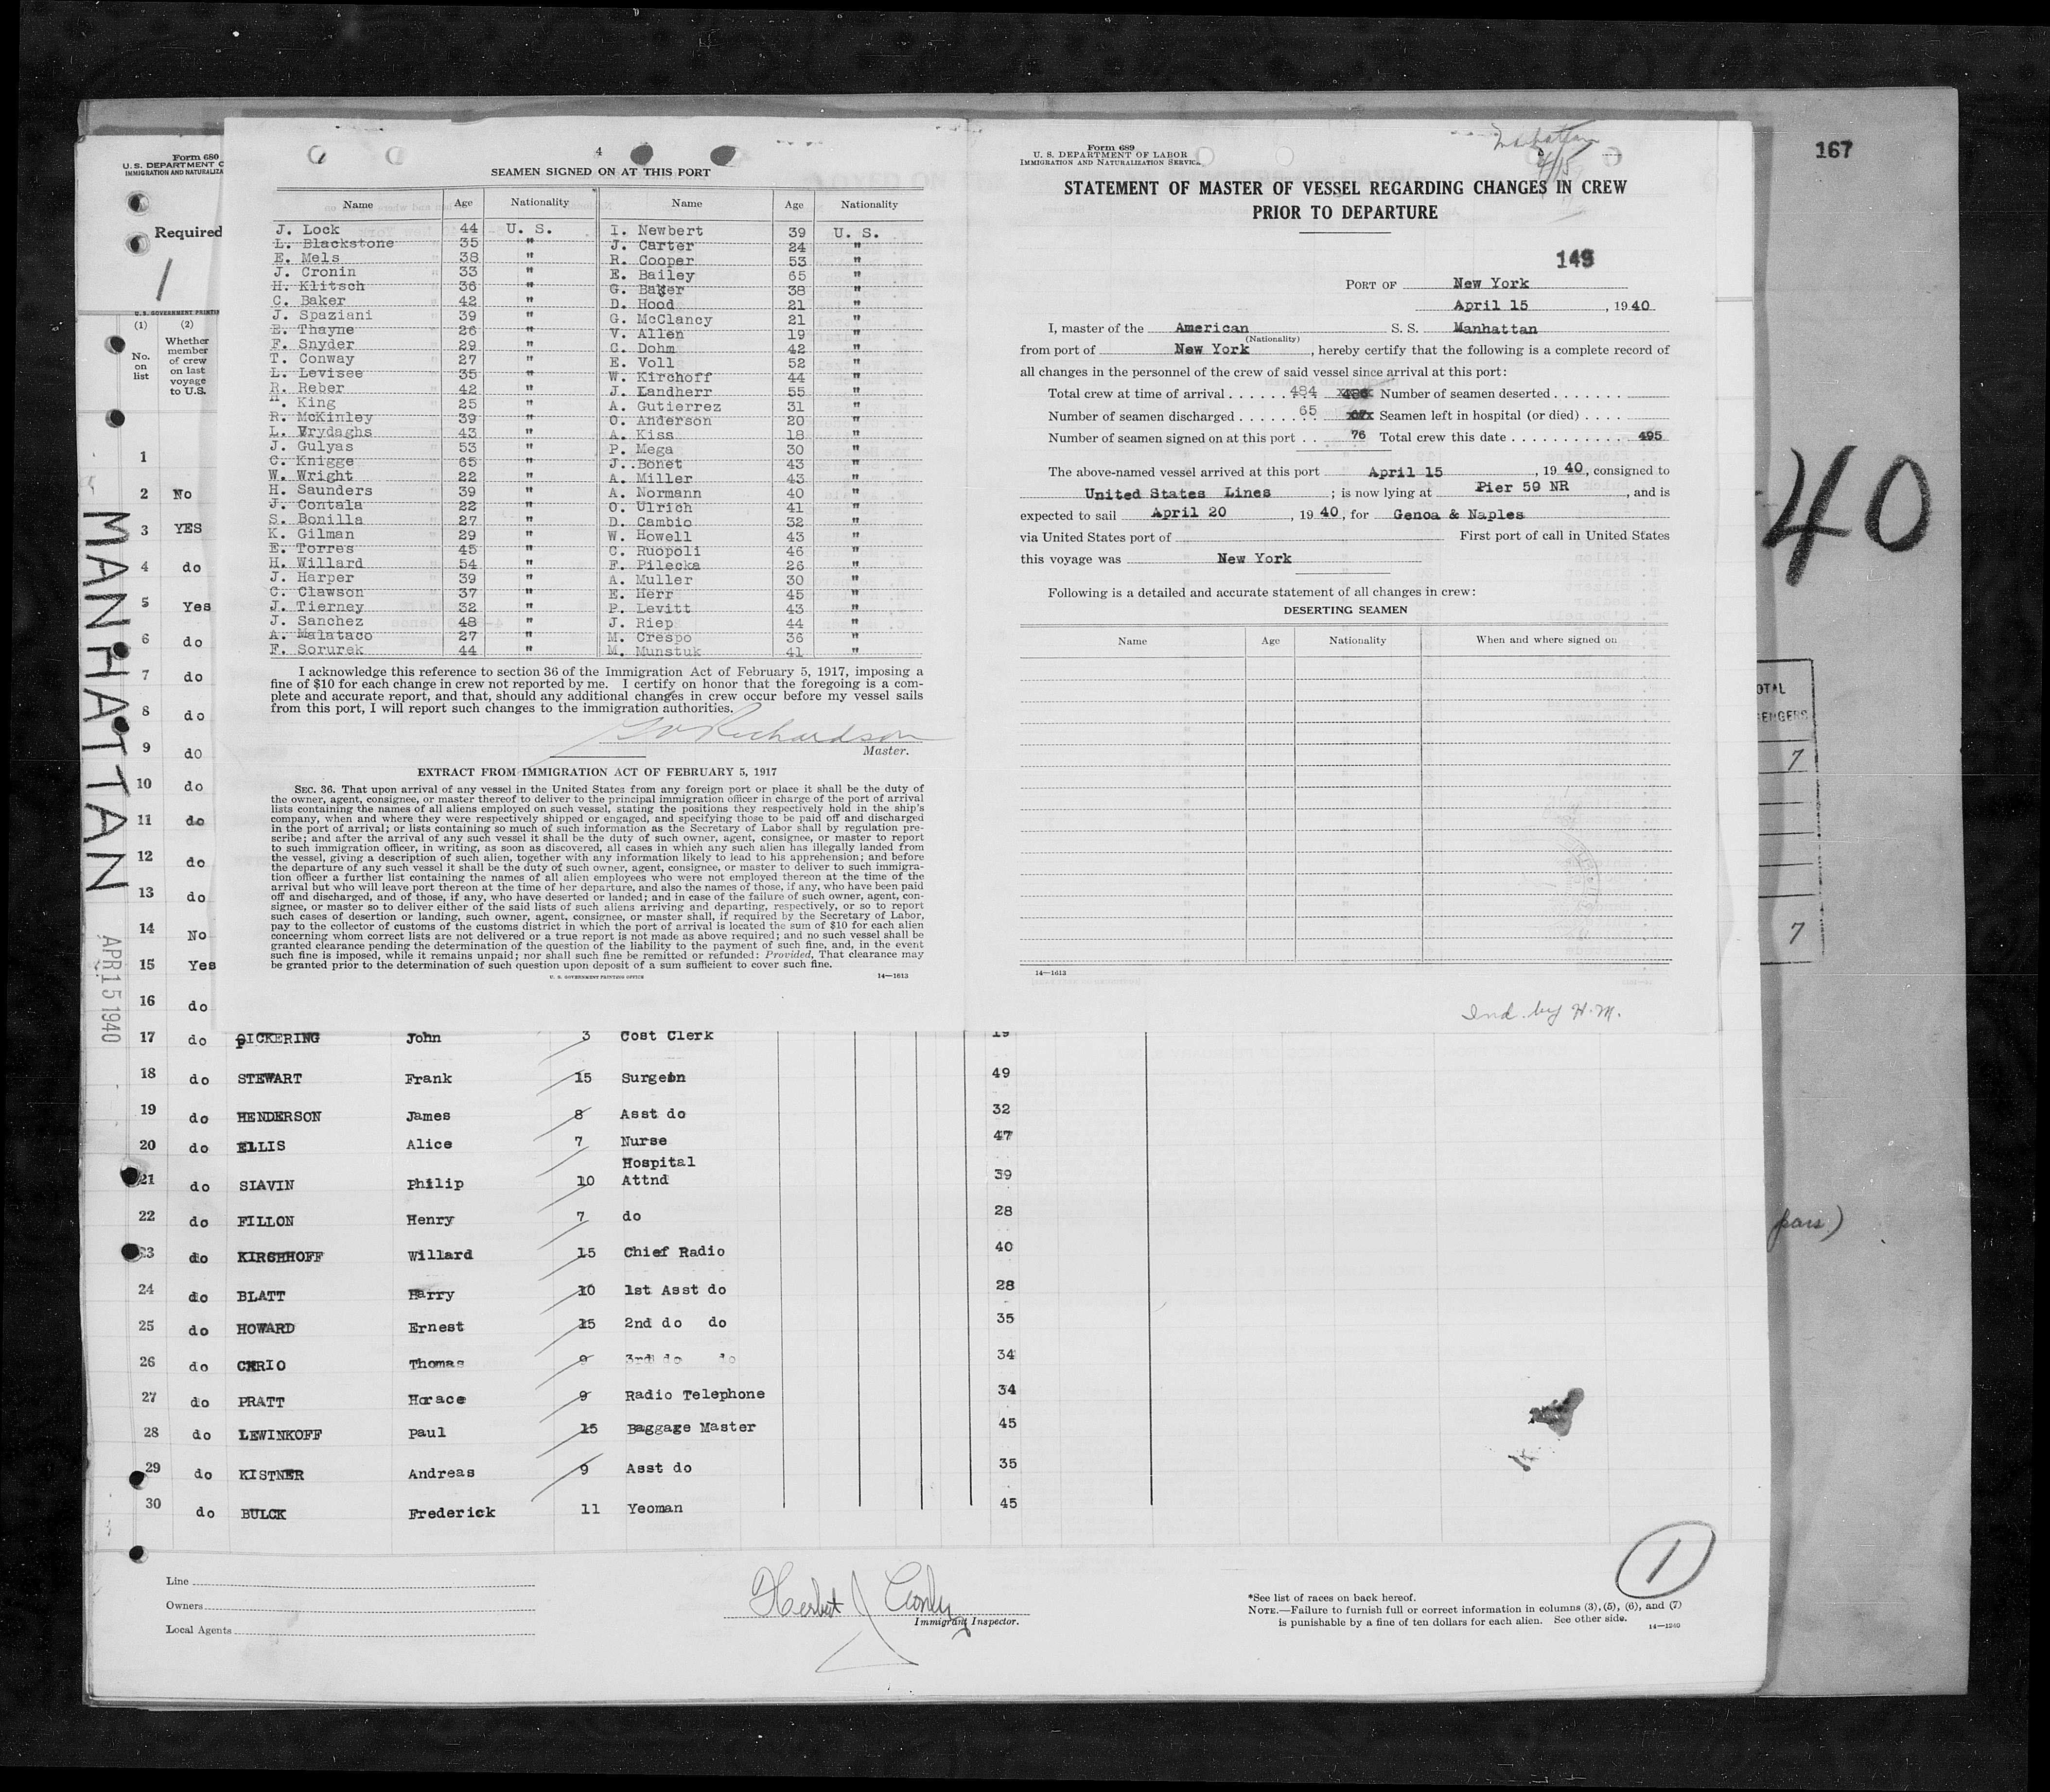 Form 680
U. S. DEPARTMENT
IMMIGRATION AND
Required
1
(1)
(2)
No. on list
Whether member of crew on last voyage to U.S.
MANHATTAN
APR 15 1940
1
2 No
3 YES
4 do
5 Yes
6 do
7 do
8 do
9 dO
10 do
11 do
12 do
13 do
14 No
15 Yes
16 do
4
SEAMEN SIGNED ON AT THIS PORT
Name Age Nationality Name Age Nationality
J. Lock 44 U. S. I. Newbert 39 U. S.
L. Blackstone 35 " J. Carter 24 "
E. Mels 38 " R. Cooper 53 "
J. Cronin 33 " E. Bailey 65 "
H. Klitsch 36 " G. Baker 38 "
C. Baker 42 " D. Hood 21 "
J. Spaziani 39 " G. McClancy 21 "
E. Thayne 26 " V. Allen 19 "
F. Snyder 29 " C. Dohm 42 "
T. Conway 27 " E. Voll 52 "
L. Levisee 35 " W. Kirchoff 44 "
R. Reber 42 " J. Landherr 55 "
King 25 " A. Gutierrez 31 "
R. McKinley 39 " O. Anderson 20 "
L. Vrydaghs 43 " A. Kiss 18 "
J. Gulyas 53 " P. Mega 30 "
C. Knigge 65 " J. Bonet 43 "
W. Wright 22 " A. Miller 43 "
H. Saunders 39 " A. Normann 40 "
J. Contala 22 " O. Ulrich 41 "
S. Bonilla 27 " D. Cambio 32 "
K. Gilman 29 " W. Howell 43 "
E. Torres 45 " C. Ruopoli 46 "
H. Willard 54 " F. Pilecka 26 "
J. Harper 39 " A. Muller 30 "
C. Clawson 37 " E. Herr 45 "
J. Tierney 32 " P. Levitt 43 "
J. Sanchez 48 " J. Riep 44 "
A. Malataco 27 " M. Crespo 36 "
F. Sorurek 44 " M. Munstuk 41 "
I acknowledge this reference to section 36 of the Immigration Act of February 5, 1917, imposing a
fine of $10 for each change in crew not reported by me. I certify on honor that the foregoing is a com-
plete and accurate report, and that, should any additional changes in crew occur before my vessel sails
from this port, I will report such changes to the immigration authorities.
Richardson
Master.
EXTRACT FROM IMMIGRATION ACT OF FEBRUARY 5, 1917
SEC. 36. That upon arrival of any vessel in the United States from any foreign port or place it shall be the duty of
the owner, agent, consignee, or master thereof to deliver to the principal immigration officer in charge of the port of arrival
lists containing the names of all aliens employed on such vessel, stating the positions they respectively hold in the ship's
company, when and where they were respectively shipped or engaged, and specifying those to be paid off and discharged
in the port of arrival; or lists containing so much of such information as the Secretary of Labor shall by regulation pre-
scribe; and after the arrival of any such vessel it shall be the duty of such owner, agent, consignee, or master to report
to such immigration officer, in writing, as soon as discovered, all cases in which any such alien has illegally landed from
the vessel, giving a description of such alien, together with any information likely to lead to his apprehension; and before
the departure of any such vessel it shall be the duty of such owner, agent, consignee, or master to deliver to such immigra-
tion officer a further list containing the names of all alien employees who were not employed thereon at the time of the
arrival but who will leave port thereon at the time of her departure, and also the names of those, if any, who have been paid
off and discharged, and of those, if any, who have deserted or landed; and in case of the failure of such owner, agent, con-
signee, or master so to deliver either of the said lists of such aliens arriving and departing, respectively, or so to report
such cases of desertion or landing, such owner, agent, consignee, or master shall, if required by the Secretary of Labor,
pay to the collector of customs of the customs district in which the port of arrival is located the sum of $10 for each alien
concerning whom correct lists are not delivered or a true report is not made as above required; and no such vessel shall be
granted clearance pending the determination of the question of the liability to the payment of such fine, and, in the event
such fine is imposed, while it remains unpaid; nor shall such fine be remitted or refunded: Provided, That clearance may
be granted prior to the determination of such question upon deposit of a sum sufficient to cover such fine.
U. S. GOVERNMENT PRINTING OFFICE 14—1613
Manhattan
4/15
Form 689
U. S. DEPARTMENT OF LABOR
IMMIGRATION AND NATURALIZATION SERVICE
STATEMENT OF MASTER OF VESSEL REGARDING CHANGES IN CREW
PRIOR TO DEPARTURE
PORT OF New York
April 15, 1940
I, master of the American S. S. Manhattan
(Nationality)
from port of New York, hereby certify that the following is a complete record of
all changes in the personnel of the crew of said vessel since arrival at this port:
Total crew at time of arrival 484 Number of seamen deserted
Number of seamen discharged 65 Seamen left in hospital (or died)
Number of seamen signed on at this port 76 Total crew this date 495
The above-named vessel arrived at this port April 15, 1940, consigned to
United States Lines; is now lying at Pier 59 NR, and is
expected to sail April 20, 1940, for Genoa & Naples
via United States port of First port of call in United States
this voyage was New York
Following is a detailed and accurate statement of all changes in crew:
DESERTING SEAMEN
Name Age Nationality When and where signed on
14—1613
Ind. by H.M.
167
40
7
7
17 do PICKERING John 3 Cost Clerk 19
18 do STEWART Frank 15 Surgeon 49
19 do HENDERSON James 8 Asst do 32
20 do ELLIS Alice 7 Nurse 47
21 do SIAVIN Philip 10 Hospital Attnd 39
22 do FILLON Henry 7 do 28
23 do KIRSHHOFF Willard 15 Chief Radio 40
24 do BLATT Harry 10 1st Asst do 28
25 do HOWARD Ernest 15 2nd do do 35
26 do CERIO Thomas 9 3rd do do 34
27 do PRATT Horace 9 Radio Telephone 34
28 do LEWINKOFF Paul 15 Baggage Master 45
29 do KISTNER Andreas 9 Asst do 35
30 do BULCK Frederick 11 Yeoman 45
Line
Owners
Local Agents
Herbert J
Immigrant Inspector.
1
*See list of races on back hereof.
NOTE.—Failure to furnish full or correct information in columns (3), (5), (6), and (7)
is punishable by a fine of ten dollars for each alien. See other side.
14—1240